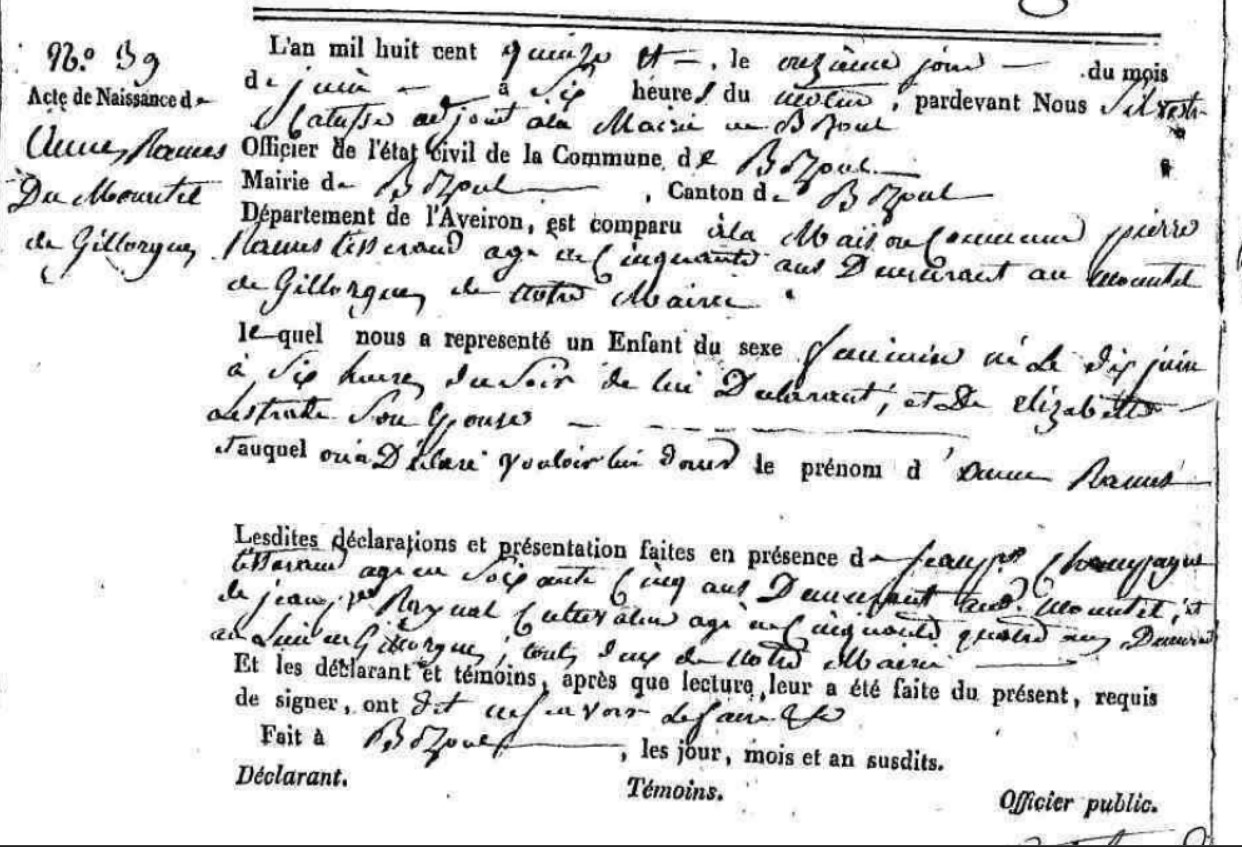 N.º 39
Acte de Naissance de
Anne Ramus
Du Mountet
de Gillorgues
L'an mil huit cent quinze et —, le onzième jour — du mois
de juin — à Six heures du matin, pardevant Nous Silvestre
adjoint à la Mairie de Bozoul
Officier de l'état civil de la Commune de Bozoul
Mairie de Bozoul, Canton de Bozoul
Département de l'Aveiron, est comparu à la Maison Commune pierre
Ramus tisserand agé de Cinquante ans Demeurant au mountet
de Gillorgues de notre Mairie.
lequel nous a representé un Enfant du sexe feminin né Le dix juin
à Six heures du Soir de lui Déclarant, et De elizabeth
Lestrade Son épouse
auquel on a Déclaré vouloir lui donner le prénom d'Anne Ramus
Lesdites déclarations et présentation faites en présence de jean Champagne
tisserand agé de Soixante Cinq ans Demeurant au Mountet, et
de jean Raynal Cultivateur agé de Cinquante quatre ans Demeurant
au de Gillorgues, touts deux de notre Mairie
Et les déclarant et témoins, après que lecture leur a été faite du présent, requis
de signer, ont dit ne savoir le faire
Fait à Bozouls, les jour, mois et an susdits.
Déclarant. Témoins. Officier public.